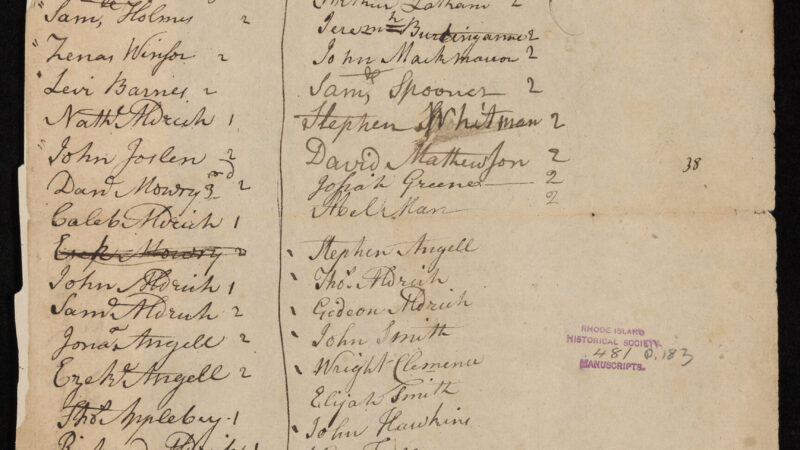 Saml Holmes 2
Zenas Winsor 2
Levi Barnes 2
Nathl Aldrich 1
John Joslen 2
Danl Mowry 3rd 2
Caleb Aldrich 1
Ezek Mowry 2
John Aldrich 1
Saml Aldrich 2
Jonan Angell 2
Ezekl Angell 2
Thos Applebey 1
Latham 2
Jeremh Burlingame 2
John Mackmanor 2
Saml Spooner 2
Stephen Whitman 2
David Mathewson 2
Josiah Greene 2
Abel Man 2
Stephen Angell
Thos Aldrich
Gideon Aldrich
John Smith
Wright Clemence
Elijah Smith
John Hawkins
38
RHODE ISLAND
HISTORICAL SOCIETY.
481 p.183
MANUSCRIPTS.